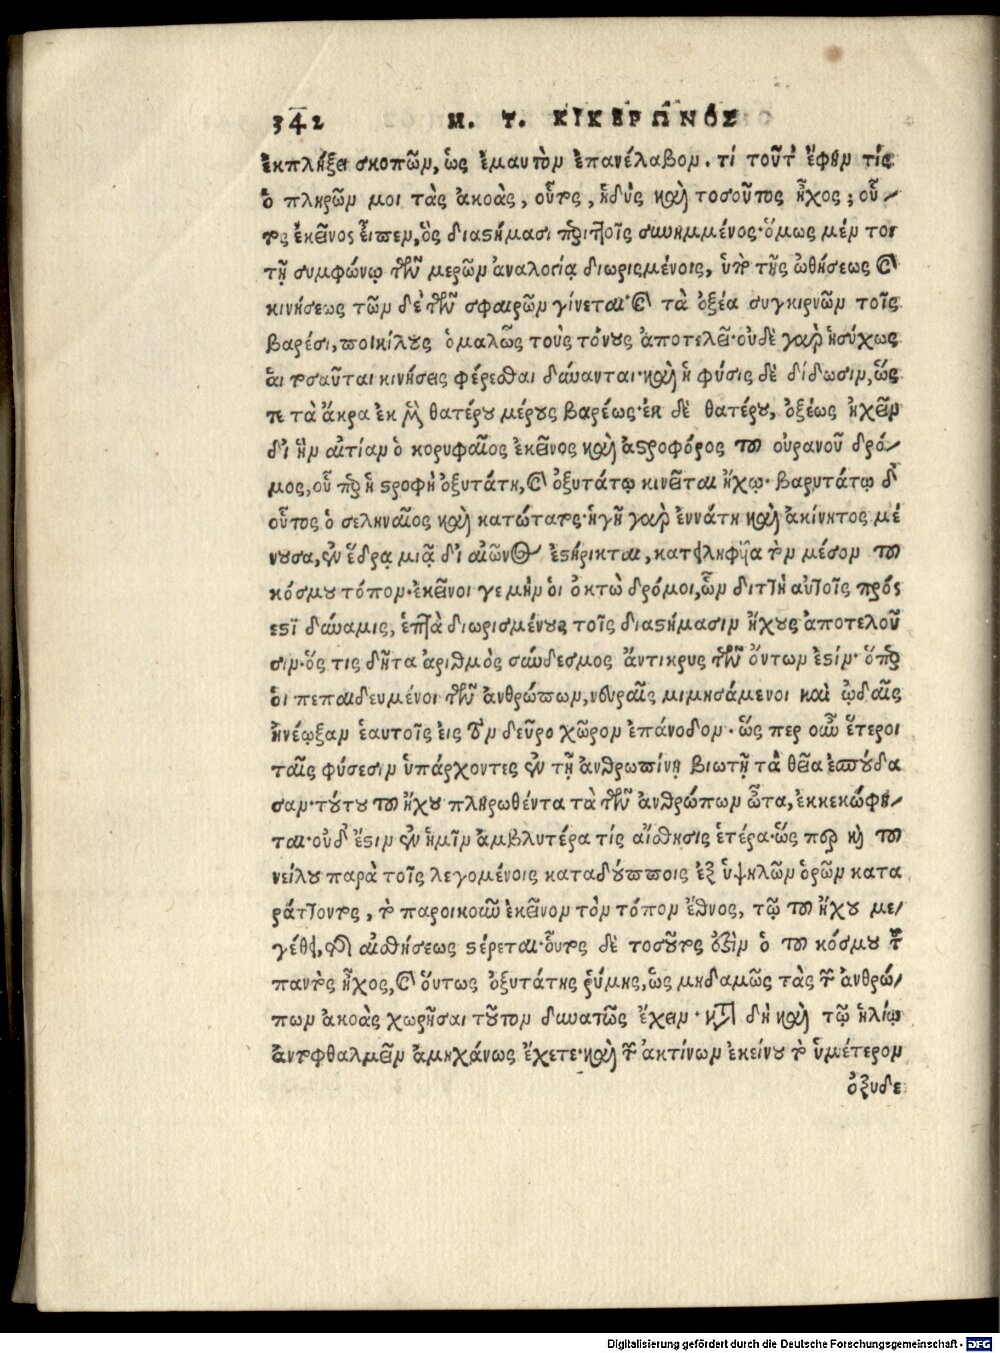 342 Μ. Τ. ΚΙΚΕΡΩΝΟΣ
ἐκπλήξει σκοπῶν, ὡς ἐμαυτὸν ἐπανέλαβον. τί τοῦτ' ἔφην τίς
ὁ πληρῶν μοι τὰς ἀκοὰς, οὗτος, ἡδὺς καὶ τοσοῦτος ἦχος; οὗ-
τος ἐκεῖνος εἶπεν, ὃς διαστήμασι περιττοῖς συνημμένος· ὅμως μέν τοι
τῇ συμφώνῳ τῶν μερῶν ἀναλογίᾳ διωρισμένοις, ὑπὸ τῆς ὠθήσεως καὶ
κινήσεως τῶν δὲ τῶν σφαιρῶν γίνεται· καὶ τὰ ὀξέα συγκιρνῶν τοῖς
βαρέσι, ποικίλους ὁμαλῶς τοὺς τόνους ἀποτελεῖ· οὐδὲ γὰρ ἡσύχως
ἁι τοσαῦται κινήσεις φέρεσθαι δύνανται· καὶ ἡ φύσις δὲ δίδωσιν, ὥς
τε τὰ ἄκρα ἐκ μὲν θατέρου μέρους βαρέως· ἐκ δὲ θατέρου, ὀξέως ἠχεῖν
δι' ἣν αἰτίαν ὁ κορυφαῖος ἐκεῖνος καὶ ἀστροφόρος τοῦ οὐρανοῦ δρό-
μος, οὗ περ ἡ στροφὴ ὀξυτάτη, καὶ ὀξυτάτῳ κινεῖται ἤχῳ· βαρυτάτῳ δ'
οὗτος ὁ σεληναῖος καὶ κατώτατος· ἡ γῆ γὰρ ἐννάτη καὶ ἀκίνητος μέ
νουσα, ἐν ἕδρᾳ μιᾷ δι' αἰῶνος ἐστήρικται, κατειληφυῖα τὸν μέσον τοῦ
κόσμου τόπον· ἐκεῖνοι γε μὴν ὁι ὀκτὼ δρόμοι, ὧν διττὴ αὐτοῖς πρός
εστι δύναμις, ἑπτὰ διωρισμένους τοῖς διαστήμασιν ἤχους ἀποτελοῦ
σιν· ὅς τις δῆτα ἀριθμὸς σύνδεσμος ἄντικρυς τῶν ὄντων ἐστίν· ὅπερ
ὁι πεπαιδευμένοι τῶν ἀνθρώπων, νευραῖς μιμησάμενοι καὶ ᾠδαῖς
ἠνέῳξαν ἑαυτοῖς εἰς τὸν δεῦρο χῶρον ἐπάνοδον· ὥς περ οὖν ἕτεροι
ταῖς φύσεσιν ὑπάρχοντες ἐν τῇ ἀνθρωπίνῃ βιωτῇ τὰ θεῖα ἐσπούδα
σαν· τούτου τοῦ ἤχου πληρωθέντα τὰ τῶν ἀνθρώπων ὦτα, ἐκκεκώφη-
ται· οὐδ' ἔστιν ἐν ἡμῖν ἀμβλυτέρα τίς αἴσθησις ἑτέρα· ὥς περ καὶ τοῦ
νείλου παρὰ τοῖς λεγομένοις καταδούπποις ἐξ ὑψηλῶν ὀρῶν κατα
ράττοντος, τὸ παροικοῦν ἐκεῖνον τὸν τόπον ἔθνος, τῷ τοῦ ἤχου με-
γέθει, τῆς αἰσθήσεως στέρεται· οὗτος δὲ τοσοῦτος ἐστὶν ὁ τοῦ κόσμου τοῦ
παντὸς ἦχος, καὶ οὕτως ὀξυτάτης ῥύμης, ὡς μηδαμῶς τὰς τῶν ἀνθρώ-
πων ἀκοὰς χωρῆσαι τοῦτον δυνατῶς ἔχειν· καθὰ δὴ καὶ τῷ ἡλίῳ
ἀντοφθαλμεῖν ἀμηχάνως ἔχετε· καὶ τῶν ἀκτίνων ἐκείνου τὸ ὑμέτερον
ὀξυδε
Digitalisierung gefördert durch die Deutsche Forschungsgemeinschaft - DFG